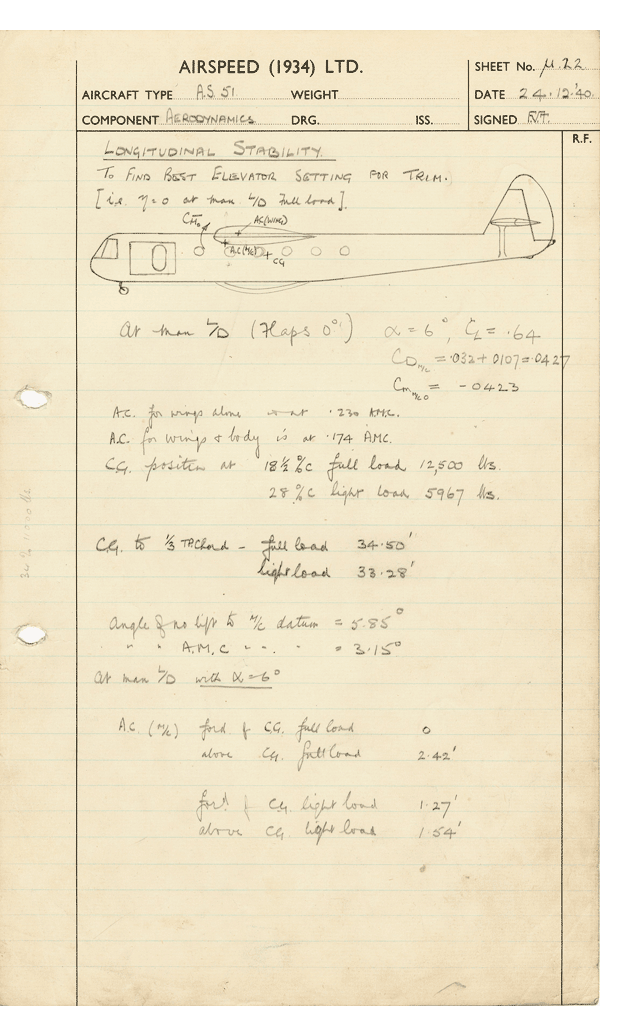 AIRSPEED (1934) LTD.
SHEET No. μ.22
AIRCRAFT TYPE A.S. 51 WEIGHT
DATE 24.12.'40.
COMPONENT AERODYNAMICS DRG. ISS.
SIGNED
R.F.
LONGITUDINAL STABILITY
TO FIND BEST ELEVATOR SETTING FOR TRIM.
[i.e. η=0 at max L/D Full load].
CM₀ AC(WING)
A.C.(M/C)
CG
At max L/D (Flaps 0°) α = 6°, CL = .64
CD M/C = .032 + .0107 = .0427
Cm M/C 0 = -.0423
A.C. for wings alone is at .230 AMC.
A.C. for wings & body is at .174 AMC.
C.G. position at 18½ %C full load 12,500 lbs.
28 %C light load 5967 lbs.
C.G. to ⅓ TP. Chord - full load 34.50'
light load 33.28'
Angle of no lift to M/C datum = 5.85°
" " A.M.C " " . " = 3.15°
At max L/D with α = 6°
A.C. (M/C) for'd of C.G. full load 0
above C.G. full load 2.42'
for'd of C.G. light load 1.27'
above C.G. light load 1.54'